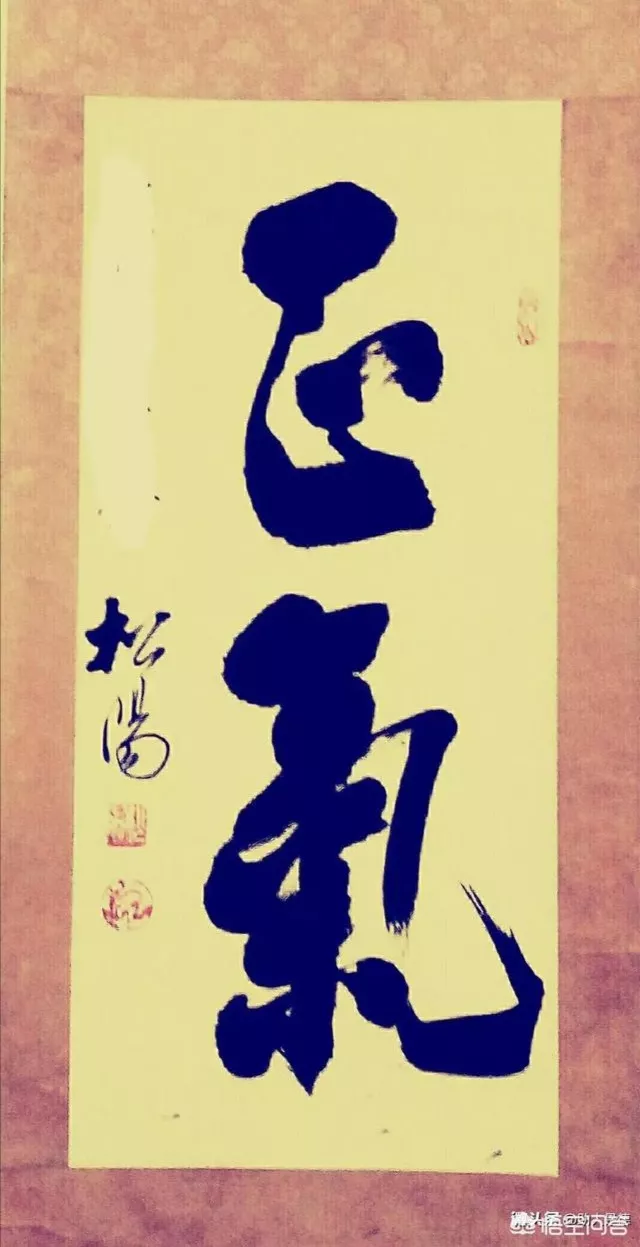 正氣
松陽
悟空问答